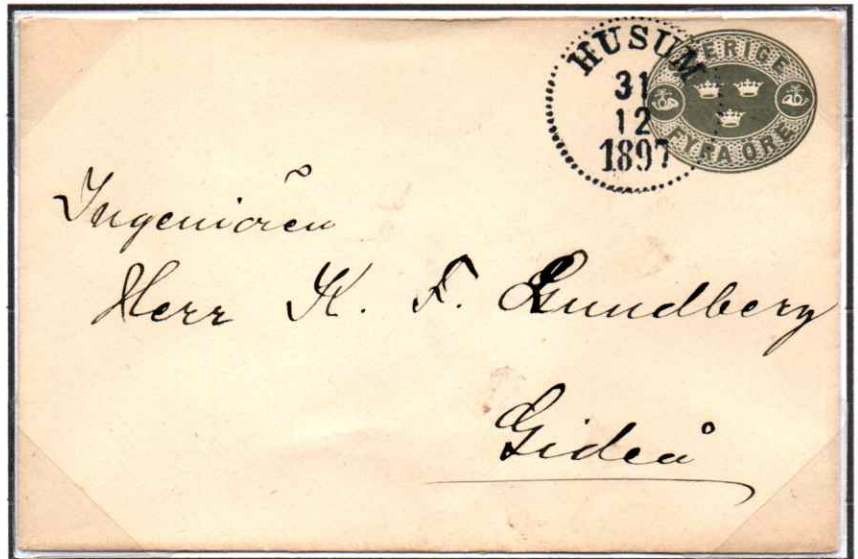 HUSUM
31
12
1897
SVERIGE
FYRA ÖRE
Ingeniören
Herr K. F. Lundberg
Gideå